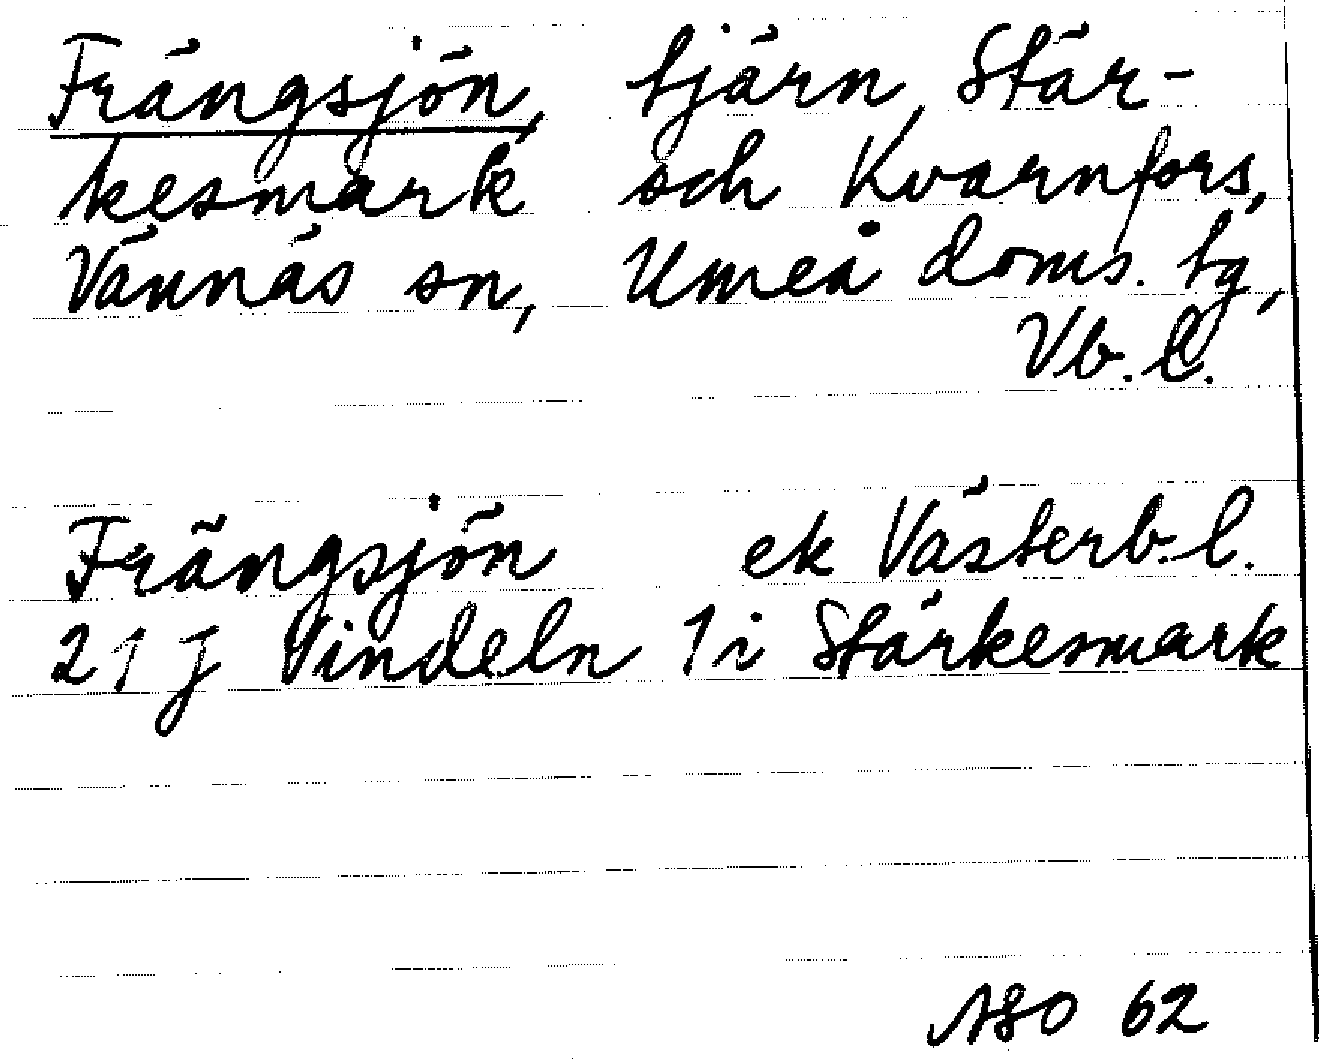 Frängsjön, tjärn, Stär-
kesmark och Kvarnfors,
Vännäs sn, Umeå doms. tg,
Vb. l.
Frängsjön ek Västerb. l.
21 J Vindeln 1 i Stärkesmark
62